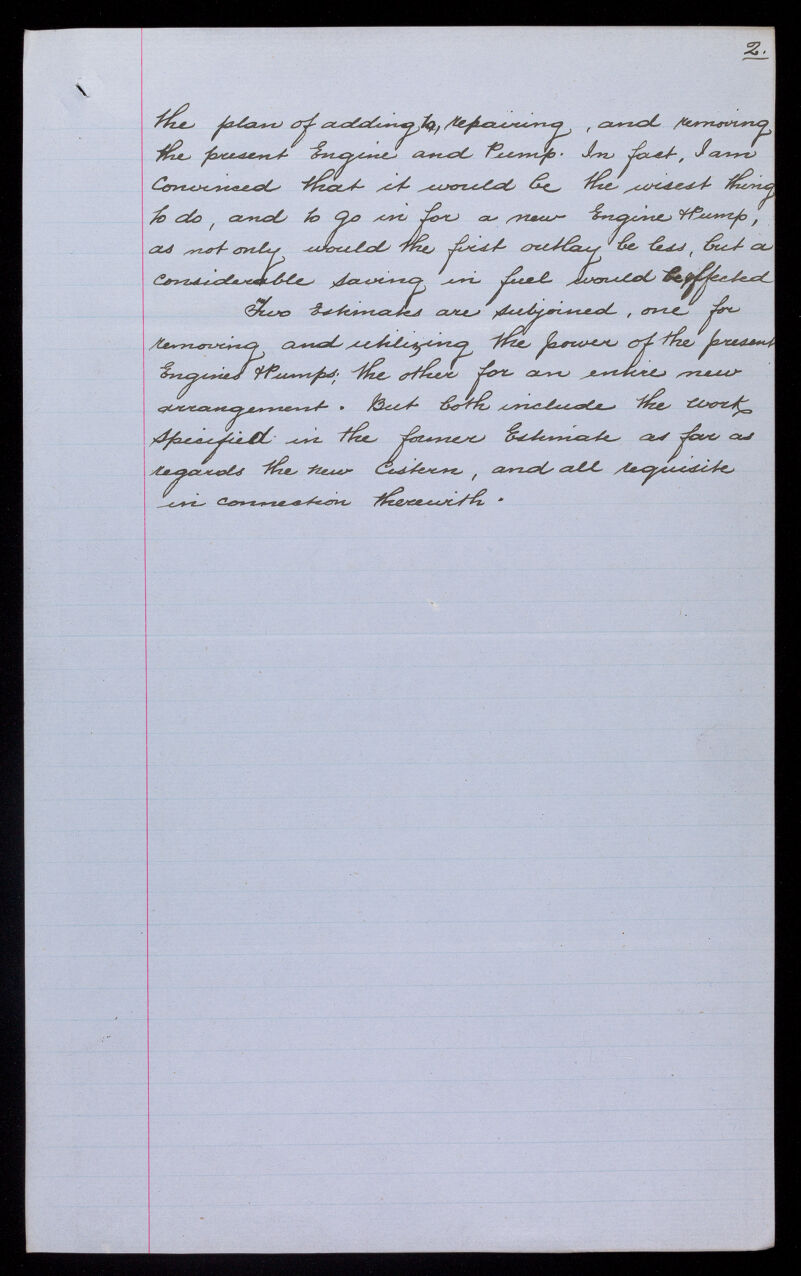 2.
the plan of adding to, repairing, and removing
the present Engine and Pump. In fact, I am
Convinced that it would be the wisest thing
to do, and to go in for a new Engine & Pump,
as not only would the first outlay be less, but a
considerable saving in fuel would be effected
Two Estimates are subjoined, one for
removing and utilizing the power of the present
Engines & Pumps; the other for an entire new
arrangement. But both include the work
specified in the former Estimate as far as
regards the new Cistern, and all requisite
in connection therewith.